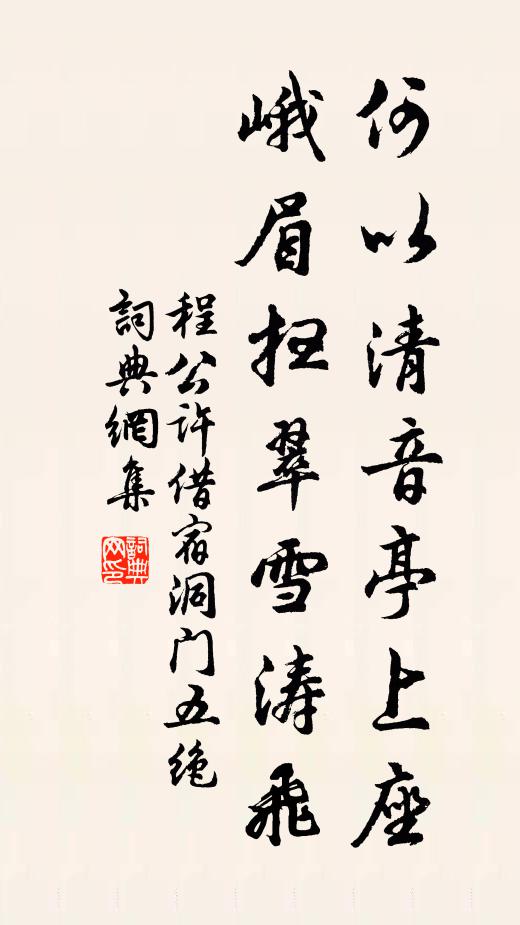 何以清音亭上座
峨眉扫翠雪涛飛
程公许借宿洞门五绝
詞典網集
詞典
网印